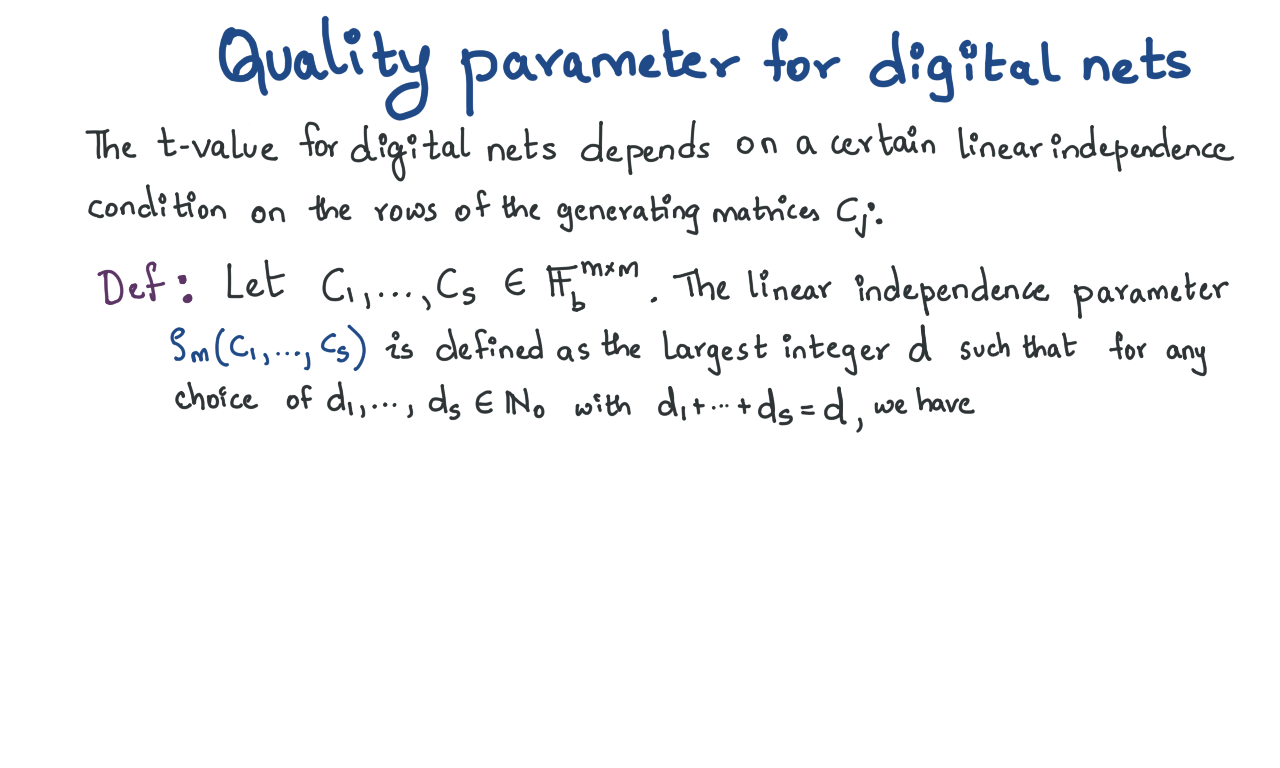 Quality parameter for digital nets
The t-value for digital nets depends on a certain linear independence
condition on the rows of the generating matrices Cj:
Def: Let C1,...,Cs ∈ 𝔽_b^{m×m}. The linear independence parameter
ρm(C1,...,Cs) is defined as the largest integer d such that for any
choice of d1,..., ds ∈ ℕ0 with d1+...+ds=d, we have